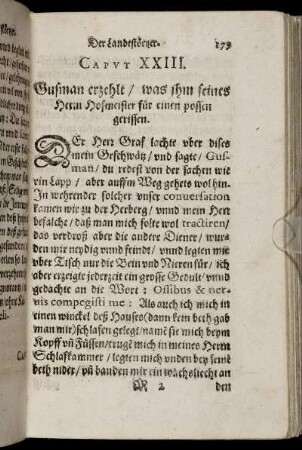 Der Landstörtzer.
179
CAPVT XXIII.
Gusman erzehlt / was ihm seines
Herrn Hofmeister für einen possen
gerissen.
DEr Herr Graf lachte vber dises
mein Geschwätz / vnd sagte / Gus-
man / du redest von der sachen wie
ein Lapp / aber auff m Weg gehets wol hin.
In wehrender solcher vnser conuersation
kamen wir zu der Herberg / vnnd mein Herr
befalche / daß man mich solte wol tractiren /
das verdroß aber die andere Diener / wur-
den mir neydig vnnd feindt / vnnd legten mir
vber Tisch nur die Bein vnd Nieren für / ich
aber erzeigte jederzeit ein grosse Gedult / vnnd
gedachte an die Wort : Ossibus & ner-
uis compegisti me : Als auch ich mich in
einen winckel deß Hauses (dann kein beth gab
man mir) schlafen gelegt / namē sie mich beym
Kopff vñ Füssen / trugē mich in meines Herrn
Schlafkammer / legten mich vnden bey seinē
beth nider / vñ banden mir ein wachsliecht an
M 2
den